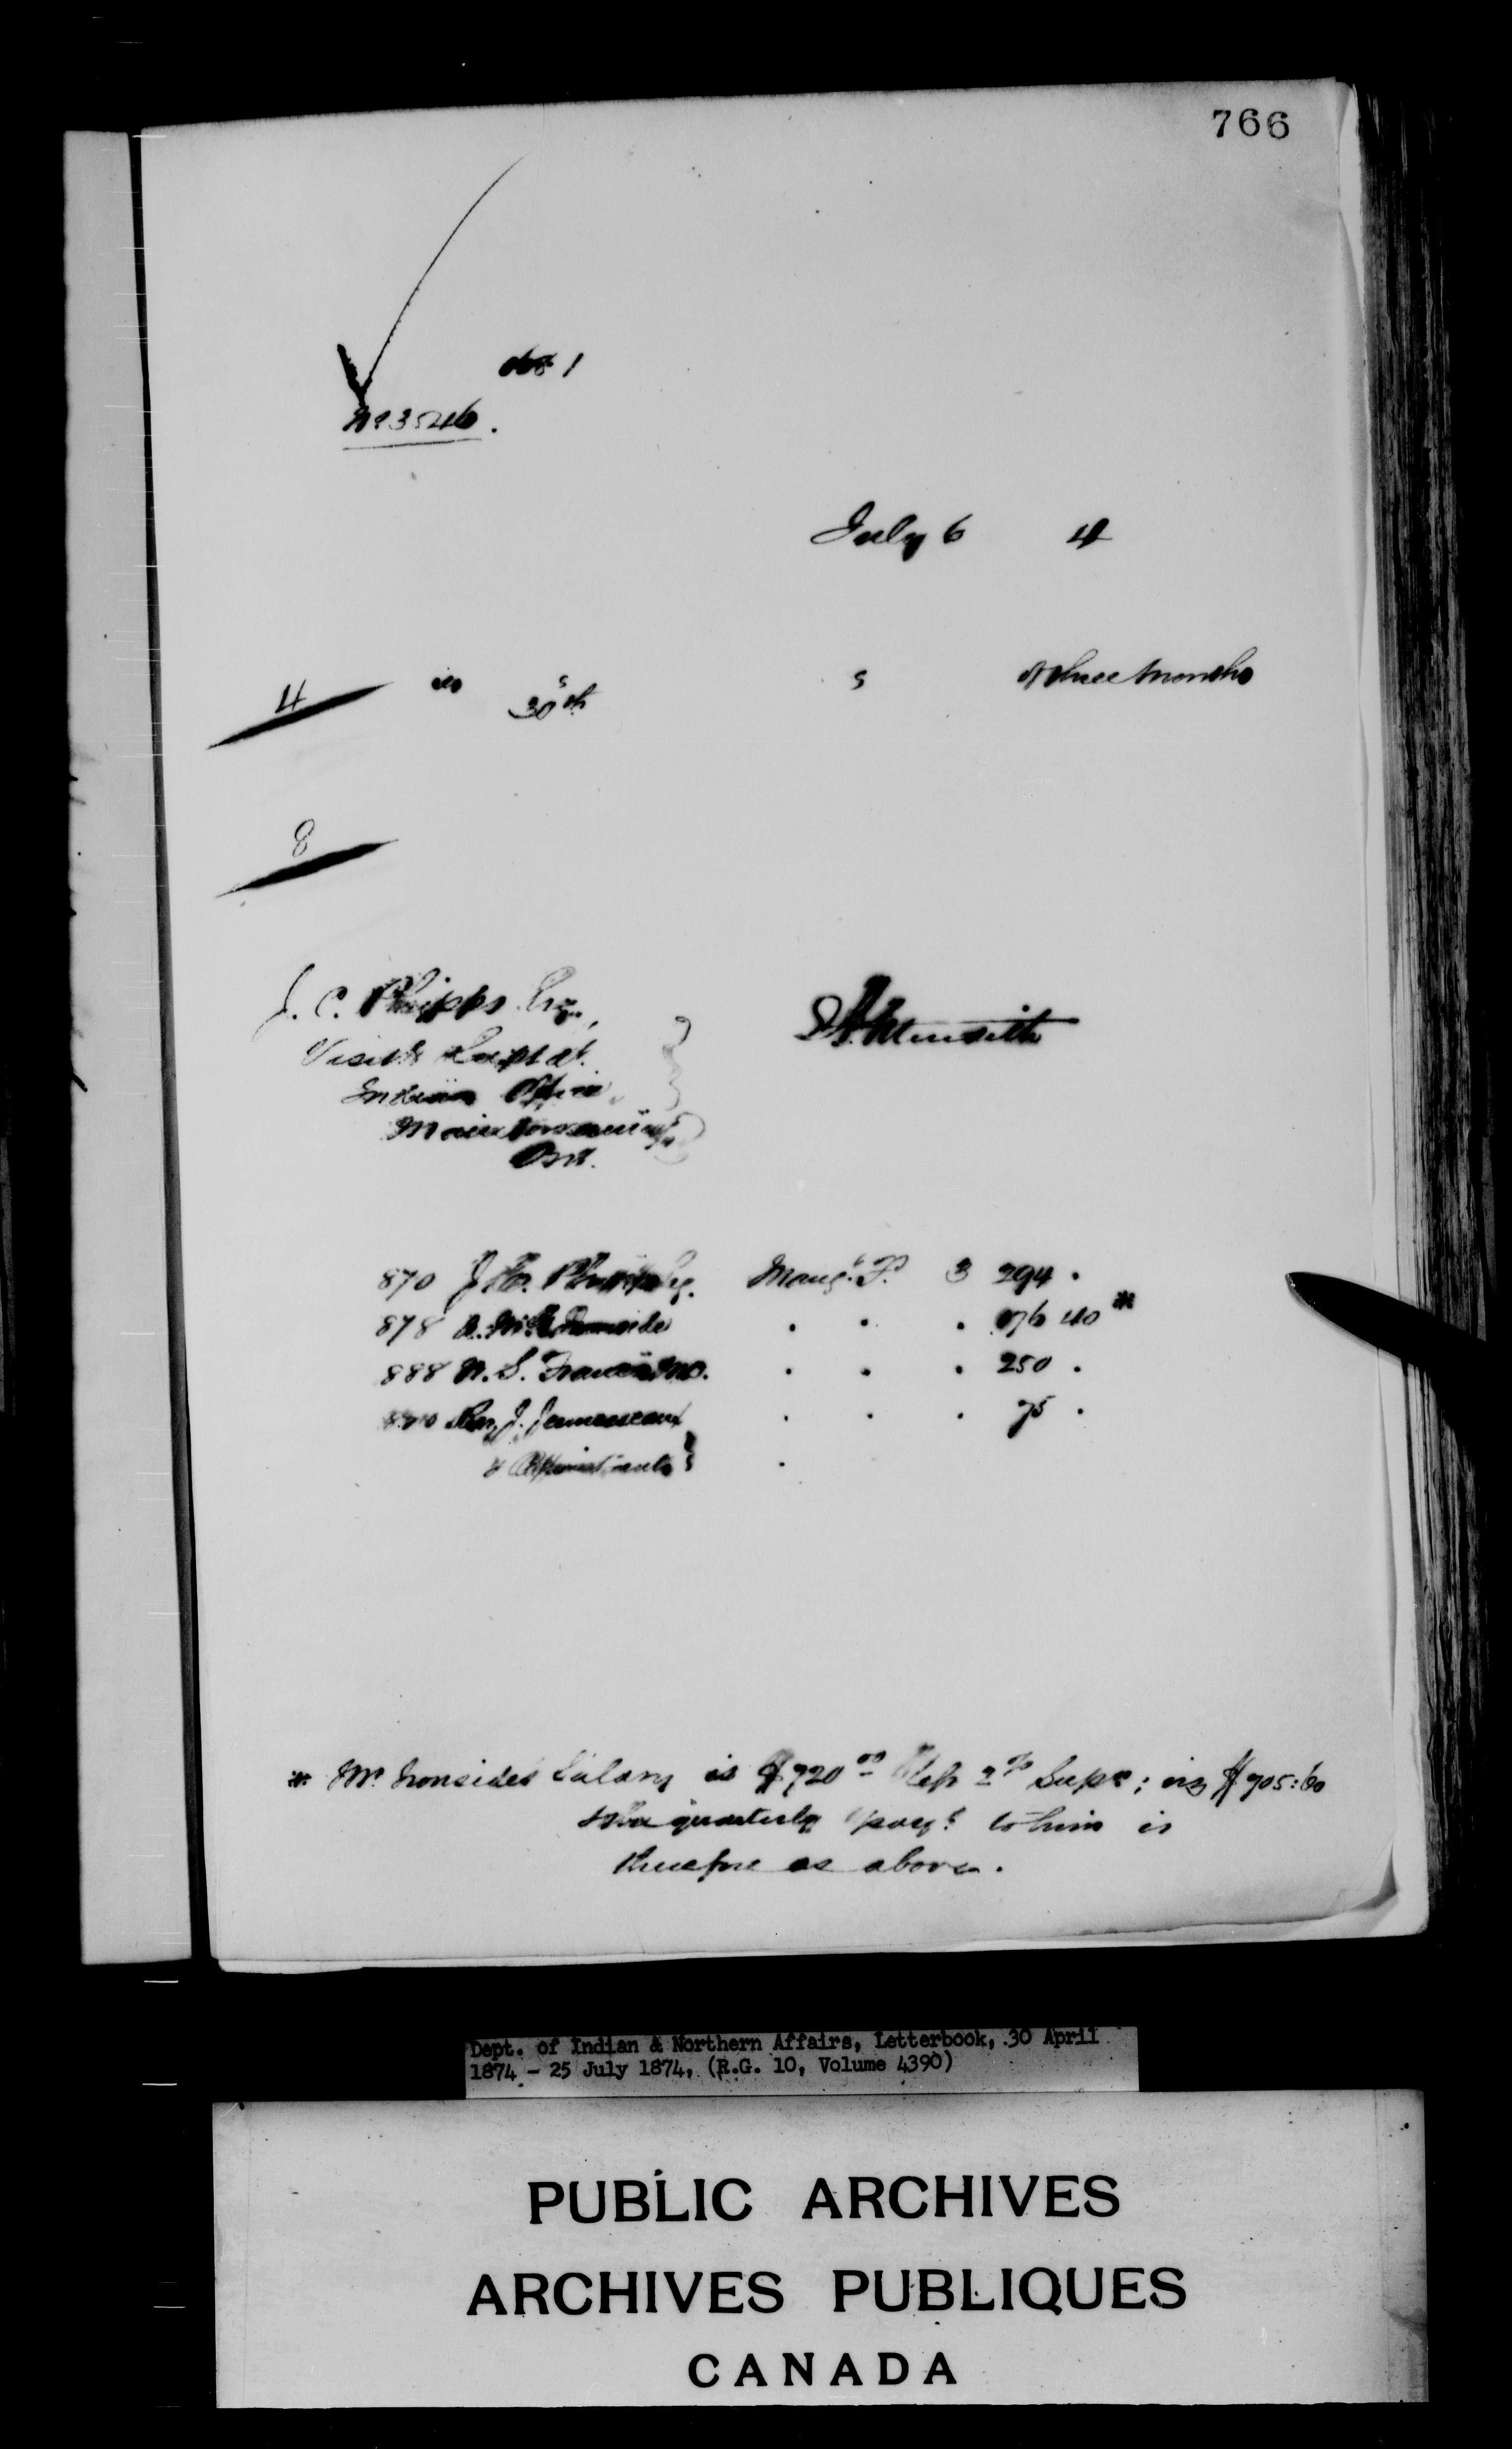 766
No 1
No 3546.
July 6 4
4 30th s of three months
8
J. C. Phipps Esq.,
Visit'g Supt &c.
Indian Office,
Manitowaning,
Ont.
870 J. C. Phipps Esq. 3 294 .
878 Ironside . . . 176 40 *
888 W. S. Francis M.D. . . . 250 .
Rev. J. Jennesseaux . . . 75 .
*. Mr Ironsides Salary is $720 00 less 2 % Supr; viz $705:60
The quarterly paymt to him is
therefore as above.
Dept. of Indian & Northern Affairs, Letterbook, 30 April
1874 - 25 July 1874, (R.G. 10, Volume 4390)
PUBLIC ARCHIVES
ARCHIVES PUBLIQUES
CANADA